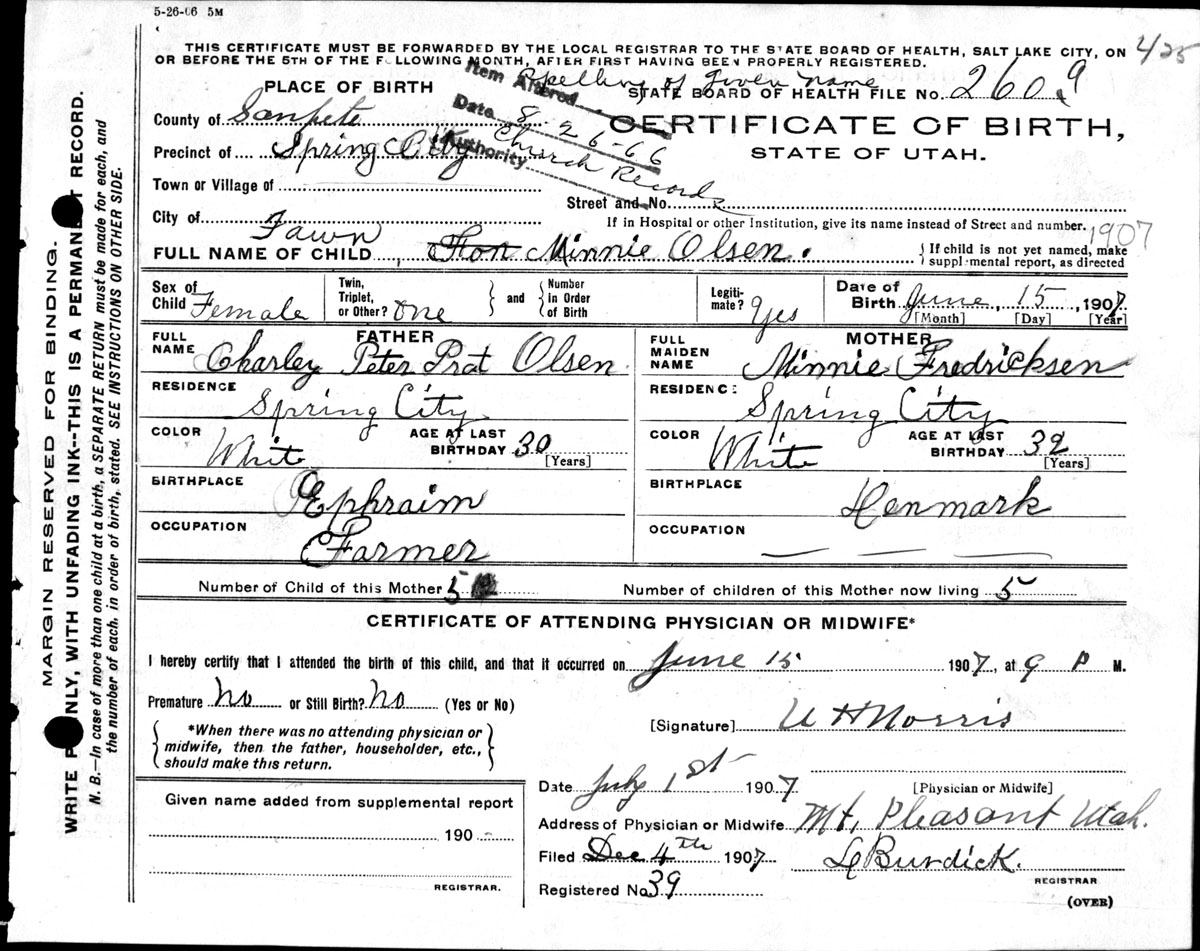 5-26-06 5M
THIS CERTIFICATE MUST BE FORWARDED BY THE LOCAL REGISTRAR TO THE STATE BOARD OF HEALTH, SALT LAKE CITY, ON
OR BEFORE THE 5TH OF THE FOLLOWING MONTH, AFTER FIRST HAVING BEEN PROPERLY REGISTERED.
425
Item Altered Spelling of Given name
Date 8-26-66
Authority Church Records
PLACE OF BIRTH
STATE BOARD OF HEALTH FILE No. 2609
County of Sanpete
CERTIFICATE OF BIRTH,
Precinct of Spring City
STATE OF UTAH.
Town or Village of
Street and No.
City of
If in Hospital or other Institution, give its name instead of Street and number.
1907
Fawn
FULL NAME OF CHILD, Fton Minnie Olsen.
{ If child is not yet named, make
supplemental report, as directed
Sex of Child Female
Twin, Triplet, or Other? One
and
Number in Order of Birth
Legitimate? Yes
Date of Birth June 15, 1907
[Month] [Day] [Year]
FATHER
FULL NAME Charley Peter Prat Olsen
RESIDENCE Spring City
COLOR White
AGE AT LAST BIRTHDAY 30
[Years]
BIRTHPLACE Ephraim
OCCUPATION Farmer
MOTHER
FULL MAIDEN NAME Minnie Fredricksen
RESIDENCE Spring City
COLOR White
AGE AT LAST BIRTHDAY 32
[Years]
BIRTHPLACE Denmark
OCCUPATION
Number of Child of this Mother 5
Number of children of this Mother now living 5
CERTIFICATE OF ATTENDING PHYSICIAN OR MIDWIFE*
I hereby certify that I attended the birth of this child, and that it occurred on June 15 1907, at 9 P M.
Premature No or Still Birth? No (Yes or No)
*When there was no attending physician or
midwife, then the father, householder, etc.,
should make this return.
[Signature] W H Norris
Date July 1st 1907
[Physician or Midwife]
Given name added from supplemental report
190
REGISTRAR.
Address of Physician or Midwife Mt. Pleasant Utah.
Filed Dec 4th 1907
Burdick.
REGISTRAR
Registered No. 39
(OVER)
MARGIN RESERVED FOR BINDING.
WRITE PLAINLY, WITH UNFADING INK--THIS IS A PERMANENT RECORD.
N. B.—In case of more than one child at a birth, a SEPARATE RETURN must be made for each, and
the number of each, in order of birth, stated. SEE INSTRUCTIONS ON OTHER SIDE.